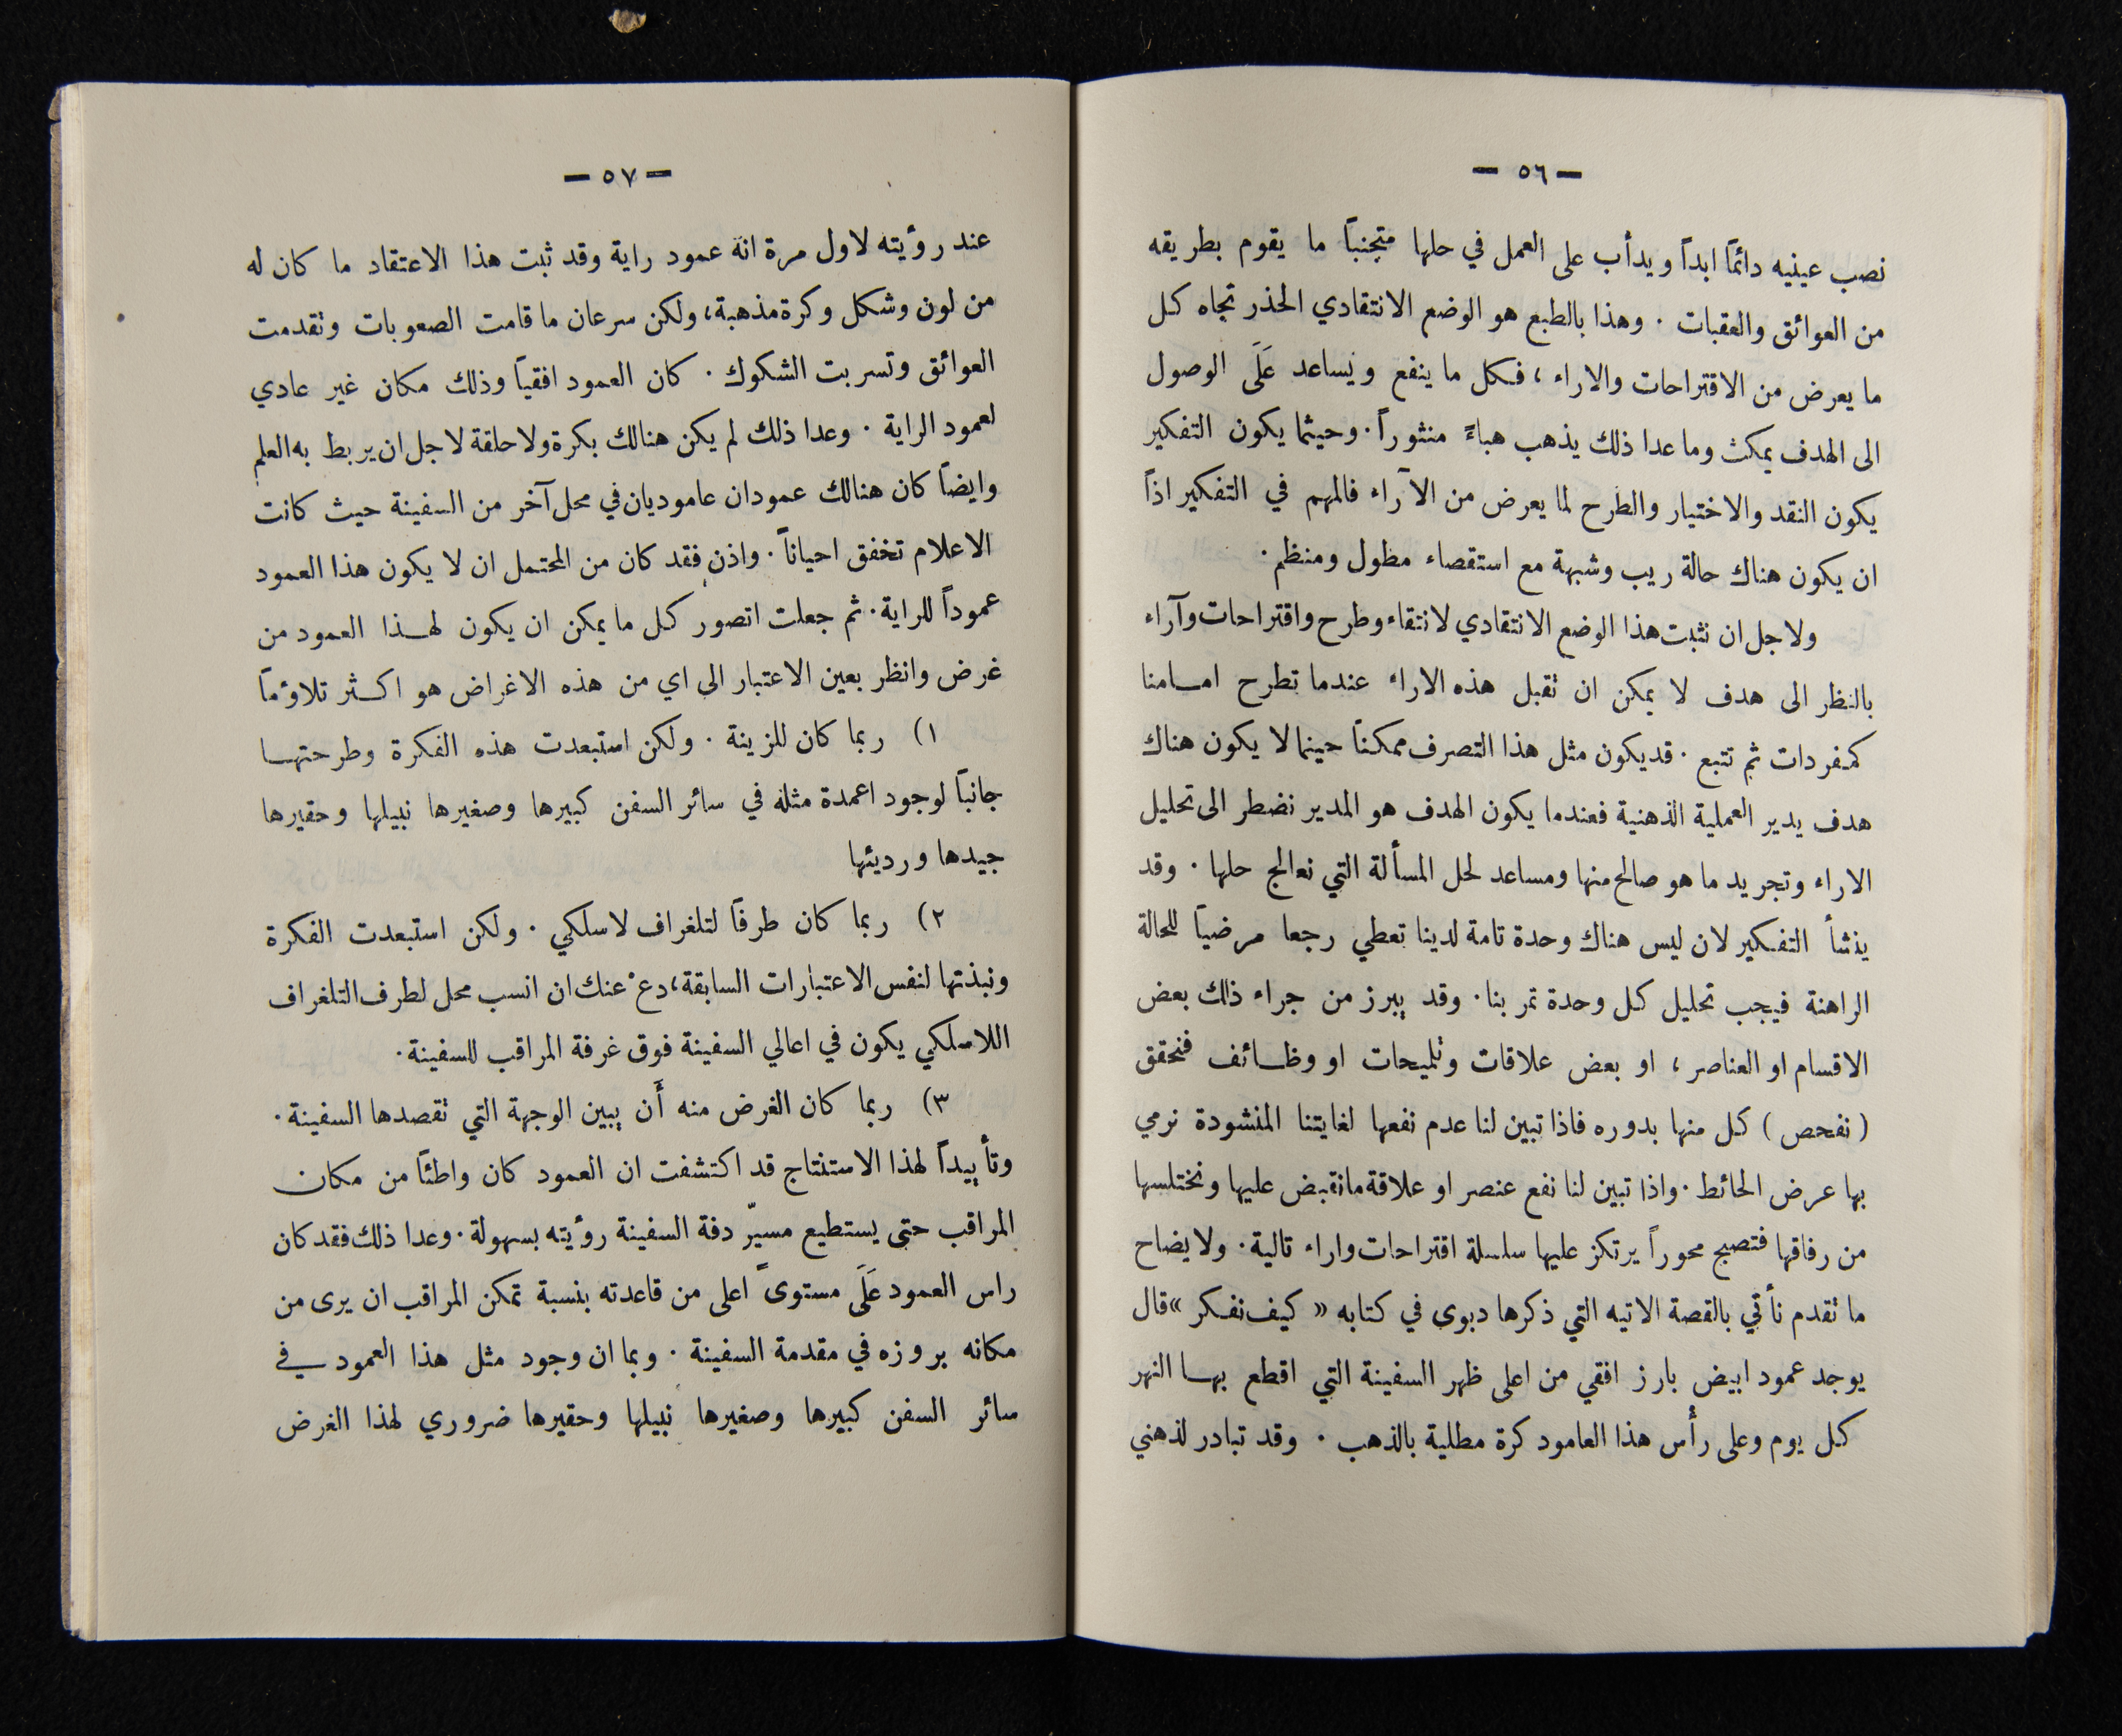 — ٥٦ —
نصب عينيه دائمًا ابداً ويدأب على العمل في حلها متجنباً ما يقوم بطريقه
من العوائق والعقبات . وهذا بالطبع هو الوضع الانتقادي الحذر تجاه كل
ما يعرض من الاقتراحات والاراء ، فكل ما ينفع ويساعد عَلَى الوصول
الى الهدف يمكث وما عدا ذلك يذهب هباءً منثوراً . وحيثما يكون التفكير
يكون النقد والاختيار والطرح لما يعرض من الآراء فالمهم في التفكير اذاً
ان يكون هناك حالة ريب وشبهة مع استقصاء مطول ومنظم .
ولاجل ان نثبت هذا الوضع الانتقادي لانتقاء وطرح واقتراحات وآراء
بالنظر الى هدف لا يمكن ان نقبل هذه الاراء عندما تطرح امامنا
كمفردات ثم تتبع . قد يكون مثل هذا التصرف ممكناً حينما لا يكون هناك
هدف يدير العملية الذهنية فعندما يكون الهدف هو المدير نضطر الى تحليل
الاراء وتجريد ما هو صالح منها ومساعد لحل المسألة التي نعالج حلها . وقد
ينشأ التفكير لان ليس هناك وحدة تامة لدينا تعطي رجعا مرضياً للحالة
الراهنة فيجب تحليل كل وحدة تمر بنا . وقد يبرز من جراء ذلك بعض
الاقسام او العناصر ، او بعض علاقات وتلميحات او وظائف فنحقق
( نفحص ) كل منها بدوره فاذا تبين لنا عدم نفعها لغايتنا المنشودة نرمي
بها عرض الحائط . واذا تبين لنا نفع عنصر او علاقة ما نقبض عليها ونختلسها
من رفاقها فتصبح محوراً يرتكز عليها سلسلة اقتراحات واراء تالية . ولايضاح
ما تقدم نأتي بالقصة الاتيه التي ذكرها ديوى في كتابه « كيف نفكر » قال
يوجد عمود ابيض بارز افقي من اعلى ظهر السفينة التي اقطع بها النهر
كل يوم وعلى رأس هذا العامود كرة مطلية بالذهب . وقد تبادر لذهني
— ٥٧ —
عند رؤيته لاول مرة انه عمود راية وقد ثبت هذا الاعتقاد ما كان له
من لون وشكل وكرة مذهبة ، ولكن سرعان ما قامت الصعوبات وتقدمت
العوائق وتسربت الشكوك . كان العمود افقياً وذلك مكان غير عادي
لعمود الراية . وعدا ذلك لم يكن هنالك بكرة ولا حلقة لاجل ان يربط به العلم
وايضاً كان هنالك عمودان عاموديان في محل آخر من السفينة حيث كانت
الاعلام تخفق احياناً . واذن فقد كان من المحتمل ان لا يكون هذا العمود
عموداً للراية . ثم جعلت اتصور كل ما يمكن ان يكون لهذا العمود من
غرض وانظر بعين الاعتبار الى اي من هذه الاغراض هو اكثر تلاؤماً
١) ربما كان للزينة . ولكن استبعدت هذه الفكرة وطرحتها
جانباً لوجود اعمدة مثله في سائر السفن كبيرها وصغيرها نبيلها وحقيرها
جيدها ورديئها
٢) ربما كان طرفاً لتلغراف لاسلكي . ولكن استبعدت الفكرة
ونبذتها لنفس الاعتبارات السابقة ، دعْ عنك ان انسب محل لطرف التلغراف
اللاسلكي يكون في اعالي السفينة فوق غرفة المراقب للسفينة .
٣) ربما كان الغرض منه أَن يبين الوجهة التي تقصدها السفينة .
وتأييداً لهذا الاستنتاج قد اكتشفت ان العمود كان واطئاً من مكان
المراقب حتى يستطيع مسيّر دفة السفينة رؤيته بسهولة . وعدا ذلك فقد كان
راس العمود عَلَى مستوىً اعلى من قاعدته بنسبة تمكن المراقب ان يرى من
مكانه بروزه في مقدمة السفينة . وبما ان وجود مثل هذا العمود في
سائر السفن كبيرها وصغيرها نبيلها وحقيرها ضروري لهذا الغرض